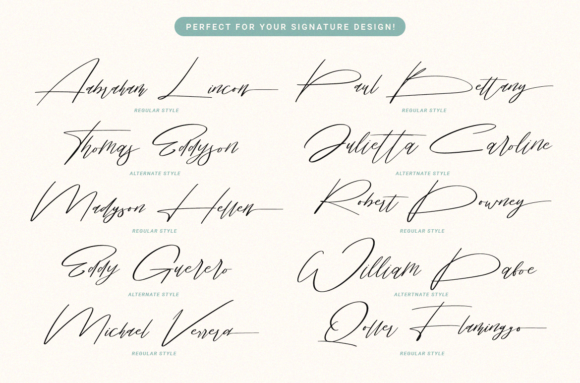 PERFECT FOR YOUR SIGNATURE DESIGN!
Aabraham Lincon
REGULAR STYLE
Paul Bettany
REGULAR STYLE
Thomas Eddyson
ALTERNATE STYLE
Julietta Caroline
ALTERTNATE STYLE
Madyson Hellen
REGULAR STYLE
Robert Downey
REGULAR STYLE
Eddy Guerero
ALTERTNATE STYLE
William Daboe
ALTERTNATE STYLE
Michael Verrera
REGULAR STYLE
Qoller Flaminggo
REGULAR STYLE